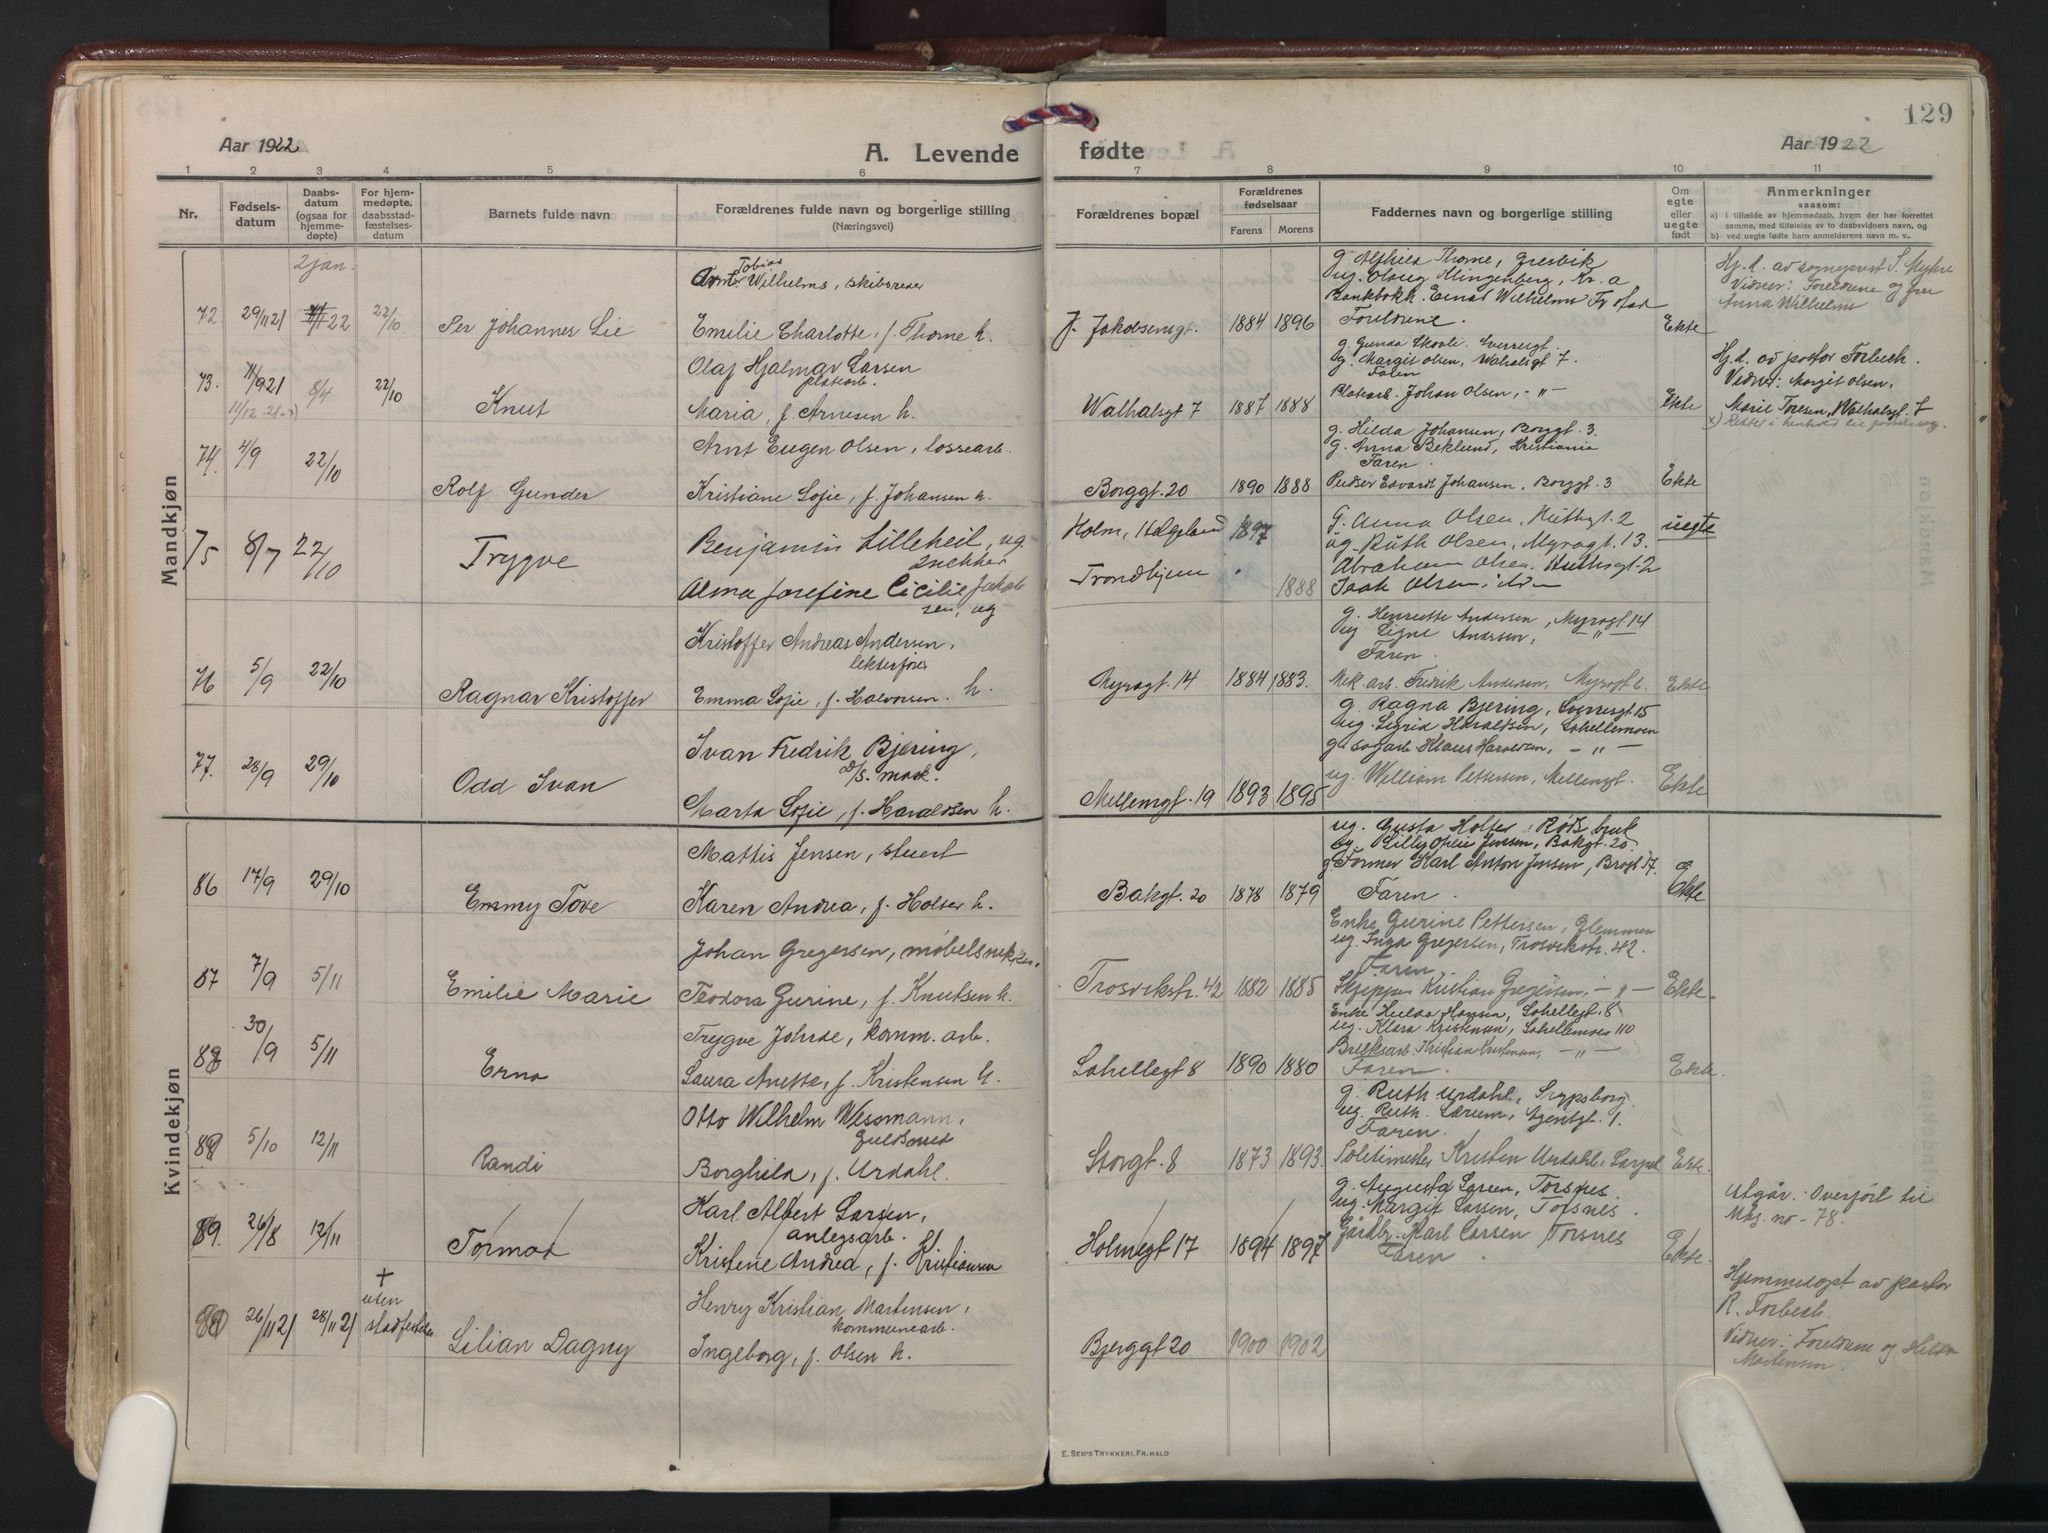 129
Aar 1922
A. Levende fødte
Aar 1922
1 2 3 4 5 6 7 8 9 10 11
Nr.
Fødsels-
datum
Daabs-
datum
(ogsaa for
hjemme-
døpte)
For hjem-
medøpte,
daabsstad-
fæstelses-
datum
Barnets fulde navn
Forældrenes fulde navn og borgerlige stilling
(Næringsvei)
Forældrenes bopæl
Forældrenes
fødselsaar
Farens Morens
Faddernes navn og borgerlige stilling
Om
egte
eller
uegte
født
Anmerkninger
saasom:
a) I tilfælde av hjemmedaab, hvem der har forrettet
samme, med tilføielse av to daabsvidners navn, og
b) ved uegte fødte barn anmelderens navn m. v..
Mandkjøn
2 jan.
72. 29/11 21 22 22/10
Per Johannes Lie
Tobias
Wilhelms, skibsreder
Emilie Charlotte, f. Thorne h.
J. Jakobsensgt. 1884 1896
g. Alfhild Thorne, Gresvik
ug. Olaug Klingenberg, Kr. a
Bankbokh. Einar Wilhelms Fr.stad
Foreldrene.
Ekte
Hj. d. av sogneprest S. Myhre
Vidner: Foreldrene og fru
Anna Wilhelms
73. 11/9 21 8/4 22/10
11/12 21 x)
Knut
Olaf Hjalmar Larsen
platearb.
Maria, f. Arnesen h.
Walhalsgt 7 1887 1888
g. Gunda Skovli, Sverresgt.
g. Margit Olsen, Walhalsgt 7.
Faren
Platearb. Johan Olsen, - " -
Ekte
Hj. d. av pastor Forbech.
Vidner: Margit Olsen,
Marie Toresen, Walhalsgt. 7
74. 4/9 22/10
Rolf Gunder
Arnt Eugen Olsen, lossearb.
Kristiane Sofie, f. Johansen h.
Borggt. 20 1890 1888
g. Hilda Johansen, Borggt. 3
g. Anna Beklund, Kristiania
Faren.
Pudser Edvardt Johansen, Borggt. 3
Ekte
75 8/7 22/10
Trygve
Benjamin Lilleheil, ug.
snekker
Alma Josefine Cicilie Jakob
sen, ug
Holm, Helgeland 1897
Trondhjem 1888
G. Anna Olsen, Huthsgt. 2
ug. Ruth Olsen, Myragt. 13.
Abraham Olsen, Huthsgt. 2
Isak Olsen,
uegte
76 5/9 22/10
Ragnar Kristoffer
Kristoffer Andreas Andersen,
lekterfører
Emma Sofie, f. Halvorsen. h.
Myragt. 14 1884 1883.
g. Henriette Andersen, Myragt. 14
ug Signe Andersen, - " -
Faren.
Mek. arb. Fredrik Andersen, Myragt 6.
Ekte
77. 28/9 29/10
Odd Ivan
Ivan Fredrik Bjering,
d/s. mask.
Marta Sofie, f. Haraldsen h.
Mellemgt. 19 1893 1895
g. Ragna Bjering, Sverresgt. 15
ug. Sigrid Haraldsen, Lahellemoen
g. sagarb. Klaus Haraldsen, - " -
ug. William Pettersen, Mellemgt.
Ekte
Kvindekjøn
86 17/9 29/10
Emmy Tove
Mattis Jensen, stuert
Karen Andrea, f. Holter h.
Bakgt. 20 1878 1879
ug. Gusta Holter, Røds bruk
ug. Lilly Jensen, Bakgt. 20.
g. Former Karl Anton Jensen, Brogt 17.
Faren.
Ekte
87 7/9 5/11
Emilie Marie
Johan Gregersen, møbelsnekker.
Teodora Gurine, f. Knutsen h.
Trosvikstr. 42 1882 1885
Enke Gurine Pettersen, Glemmen
ug. Inga Gregersen, Trosvikstr. 42.
Faren.
Skipper Kristian Gregersen, - " -
Ekte.
88 30/9 5/11
Erna
Trygve Johrde, komm. arb.
Laura Anette, f. Kristensen h.
Lahellegt 8 1890 1880
Enke Hulda Hansen, Lahellegt. 8
ug. Klara Kristensen, Lahellemoen 110
Bruksarb. Kristian Kristensen, - " -
Faren.
Ekte.
5/10 12/11
Randi
Otto Wilhelm Wessmann,
Guldsmed
Borghild, f. Urdahl.
Storgt. 8 1873 1893.
g. Ruth Urdahl, Sarpsborg.
ug. Ruth Larum, Agentgt. 1.
Faren.
Politimester Kristen Urdahl, Sarpsb
Ekte.
89. 26/8 12/11
Tormod
Karl Albert Larsen,
anlegsarb.
Kristine Andrea, f. Kristiansen
Holmegt 17 1894 1897
g. Augusta Larsen, Torsnes.
ug. Margit Larsen, Torsnes.
Gårdbr. Karl Larsen Torsnes
Faren.
Ekte.
Utgår. Overført til
Mkj. no - 78.
26/11 21 28/11 21
+
uten
stadfestelse
Lilian Dagny
Henry Kristian Martinsen,
kommunearb.
Ingeborg, f. Olsen h.
Bjerggt 20 1900 1902
Hjemmedøpt av pastor
R. Forbech.
Vidner: Foreldrene og Hilda
Martinsen.
E. SEM'S TRYKKERI, FR.HALD